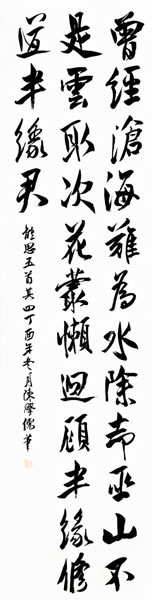 曾經滄海難為水除却巫山不
是雲取次花叢懶迴顧半緣修
道半緣君
離思五首其四丁酉年冬月陳儒筆